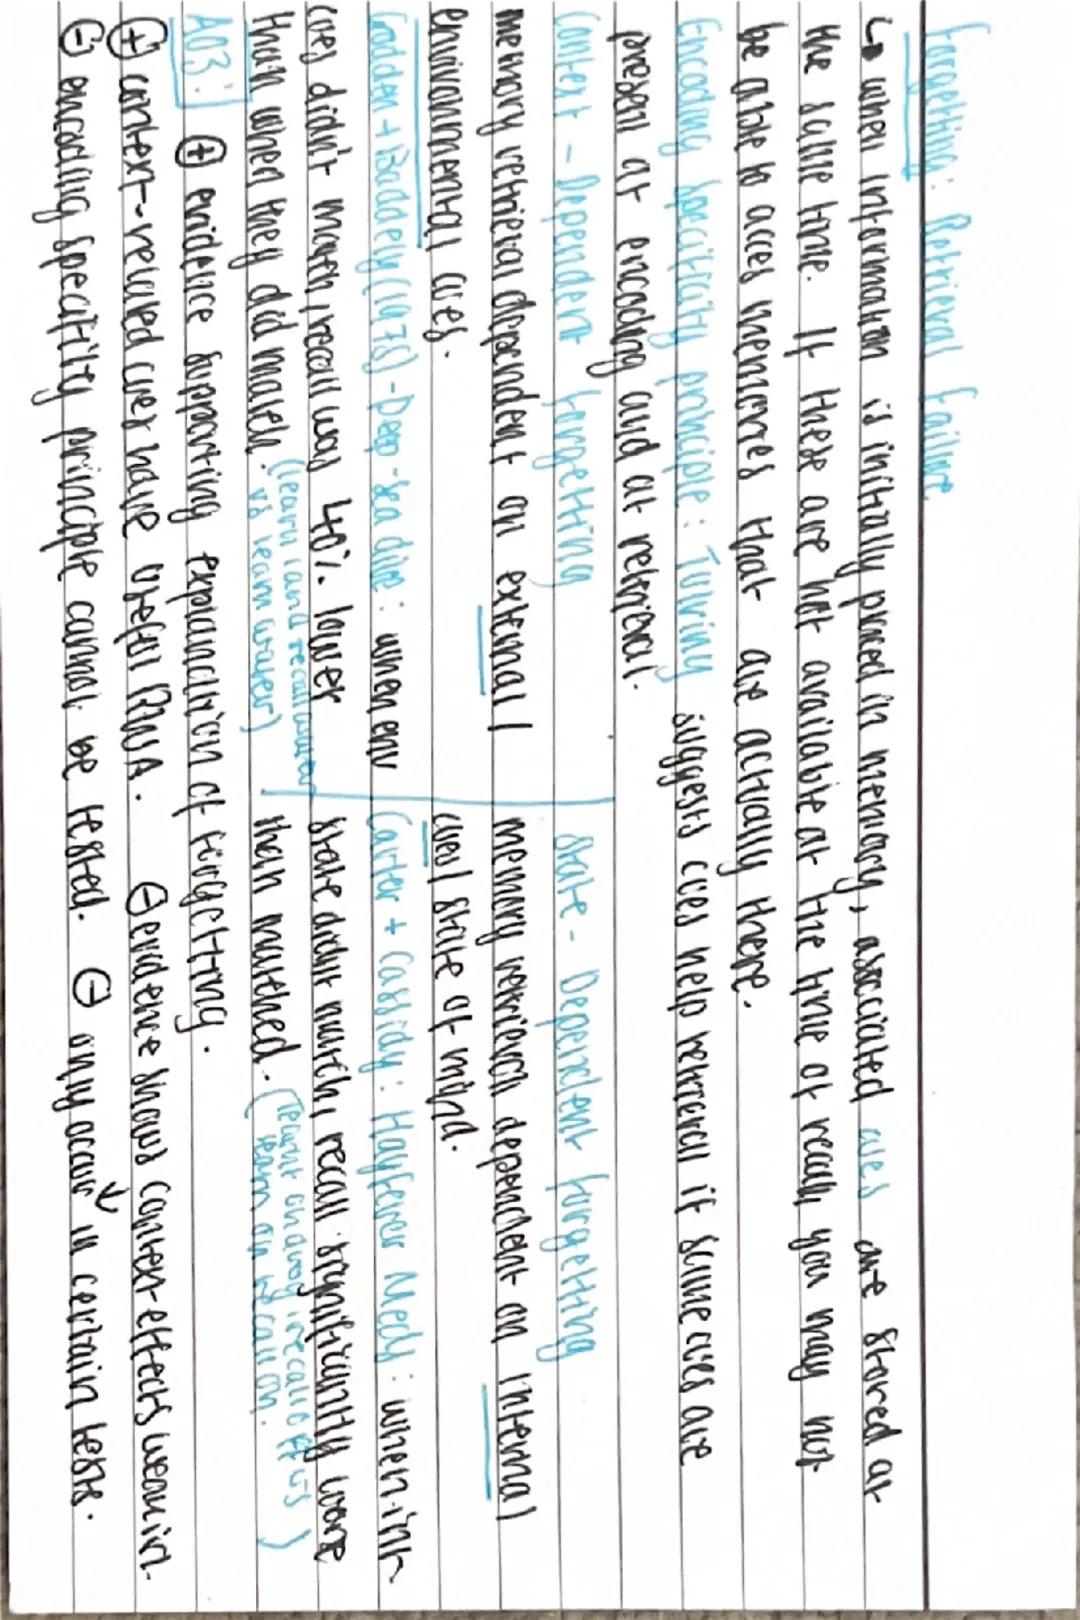 Forgetting: Retrieval Failure
↳ when information is initially placed in memory, associated cues are stored at
the same time. If these are not available at the time of recall, you may not
be able to acces memories that are actually there.
Encoding specificity principle: Tulving suggests cues help retrieval if same cues are
present at encoding and at retrieval.
Context - Dependent forgetting
memory retrieval dependent on external /
environmental cues.
Godden + Baddely (1975) - Deep-sea dive: when env
cues didn't match, recall was 40% lower
than when they did match. (learn land recall water
vs learn water)
State - Dependent forgetting
memory retrieval dependent on internal
cues / state of mind.
Carter + Cassidy: Hayfever Med: when int
state didnt match, recall significantly worse
than matched. (learnt on drug, recall off vs
learn on recall on.)
AO3: ⊕ evidence supporting explanation of forgetting.
⊕ context-related cues have useful RWA. ⊖ evidence shows context effects weak in
⊖ encoding specifity principle cannot be tested. ⊖ only occur in certain tests.